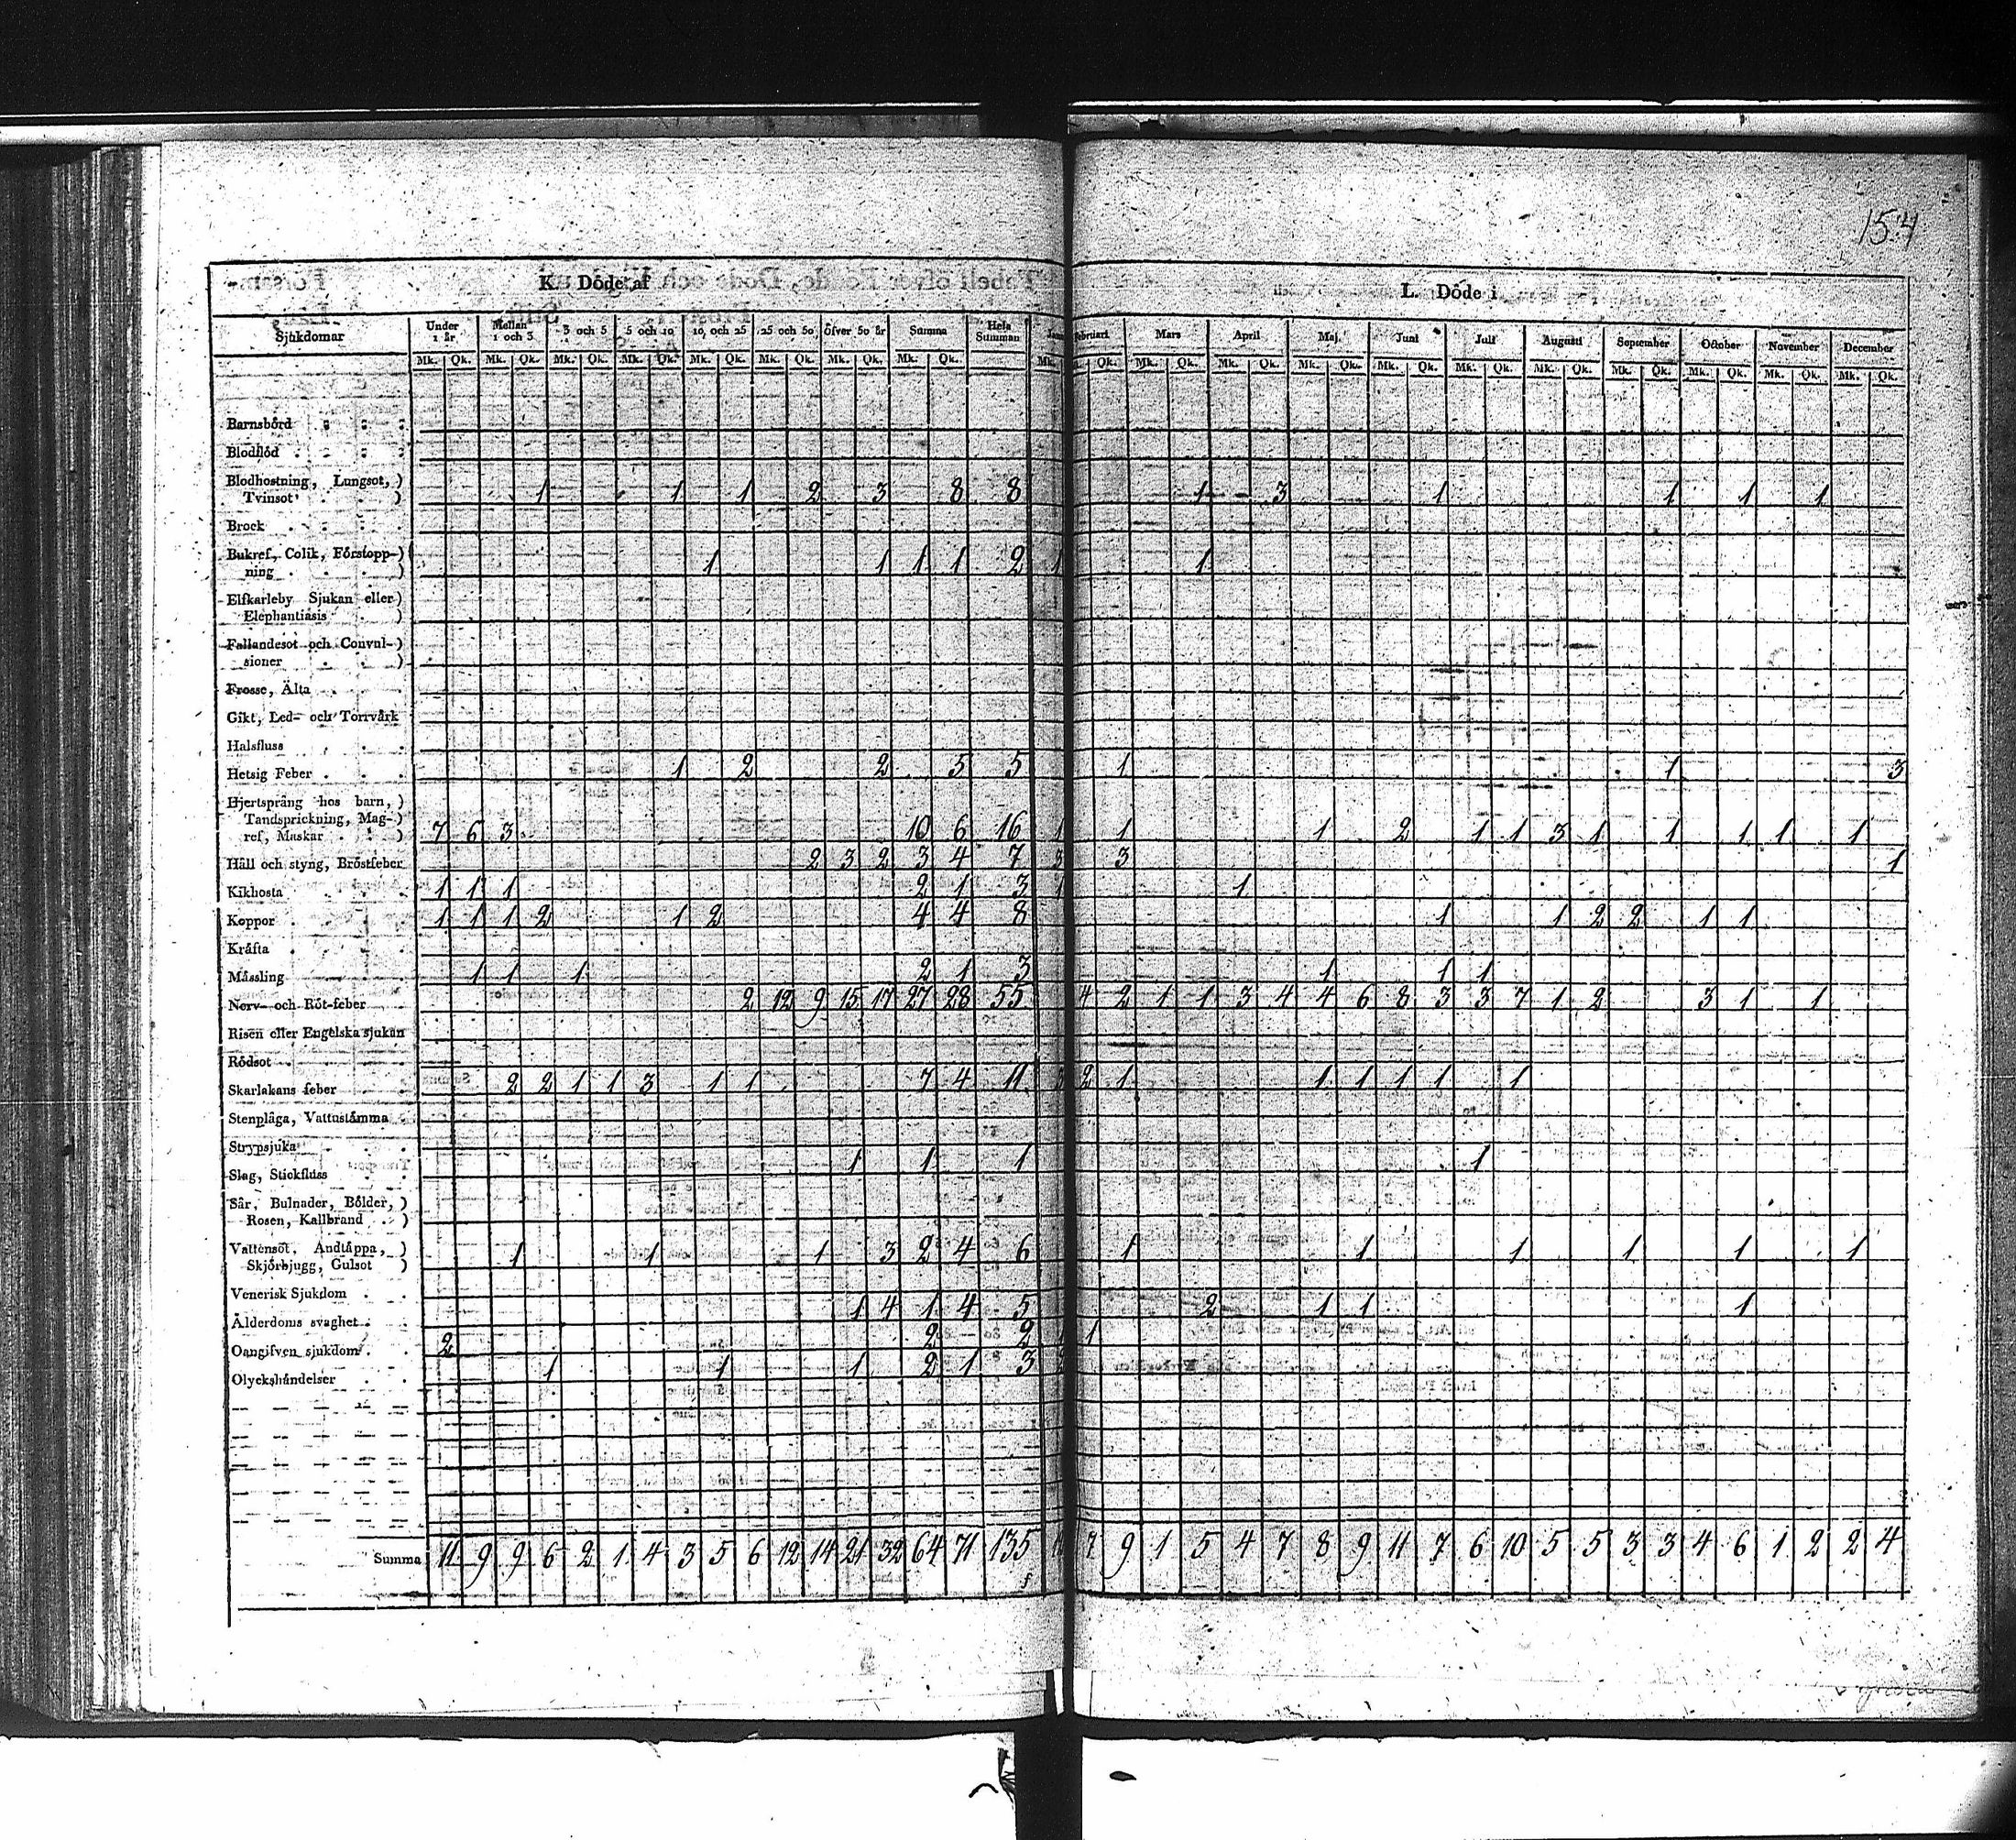 154
K. Döde af
L. Döde i
Sjukdomar Under 1 år Mellan 1 och 3 3 och 5 5 och 10 10 och 25 25 och 50 öfver 50 år Summa Hela Summan Februari Mars April Maj Juni Juli Augusti September October November December
Mk. Qk. Mk. Qk. Mk. Qk. Mk. Qk. Mk. Qk. Mk. Qk. Mk. Qk. Mk. Qk. Mk. Qk. Mk. Qk. Mk. Qk. Mk. Qk. Mk. Qk. Mk. Qk. Mk. Qk. Mk. Qk. Mk. Qk. Mk. Qk. Mk. Qk.
Barnsbörd
Blodflöd
Blodhostning, Lungsot,
Tvinsot 1 1 1 2 3 8 8 1 3 1 1 1 1
Brock
Bukref, Colik, Förstopp-
ning 1 1 1 1 2 1 1
Elfkarleby Sjukan eller
Elephantiasis
Fallandesot och Convul-
sioner
Frosse, Älta
Gikt, Led- och Torrvärk
Halsfluss
Hetsig Feber 1 2 2 5 5 1 1 3
Hjertsprång hos barn,
Tandsprickning, Mag-
ref, Maskar 7 6 3 10 6 16 1 1 1 2 1 1 3 1 1 1 1 1
Håll och styng, Bröstfeber 2 3 2 3 4 7 3 3 1
Kikhosta 1 1 1 2 1 3 1 1
Koppor 1 1 1 2 1 2 4 4 8 1 1 2 2 1 1
Kräfta
Mässling 1 1 1 2 1 3 1 1 1
Nerv- och Röt-feber 2 12 9 15 17 27 28 55 4 2 1 1 3 4 4 6 8 3 3 7 1 2 3 1 1
Risen eller Engelska sjukan
Rödsot
Skarlakans feber 2 2 1 1 3 1 1 7 4 11 3 2 1 1 1 1 1 1
Stenplåga, Vattustämma
Strypsjuka
Slag, Stickfluss 1 1 1 1
Sår, Bulnader, Bölder,
Rosen, Kallbrand
Vattensot, Andtäppa,
Skjörbjugg, Gulsot 1 1 1 3 2 4 6 1 1 1 1 1 1
Venerisk Sjukdom
Ålderdoms svaghet 1 4 1 4 5 2 1 1 1
Oangifven sjukdom 2 2 2 1 1
Olyckshändelser 1 1 1 2 1 3
Summa 11 9 9 6 2 1 4 3 5 6 12 14 21 32 64 71 135 7 9 1 5 4 7 8 9 11 7 6 10 5 5 3 3 4 6 1 2 2 4